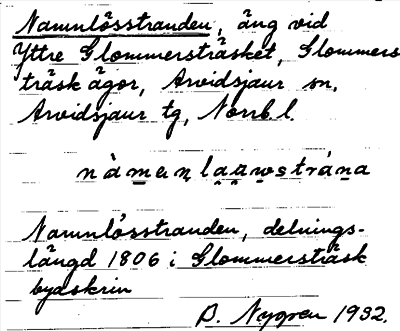 Namnlösstranden, äng vid
Yttre Glommersträsket, Glommers-
träsk ägor, Arvidsjaur sn,
Arvidsjaur tg, Norrb. l.
Namnlösstranden, delnings-
längd 1806 i Glommersträsk
byaskrin
B. Nygren 1932.